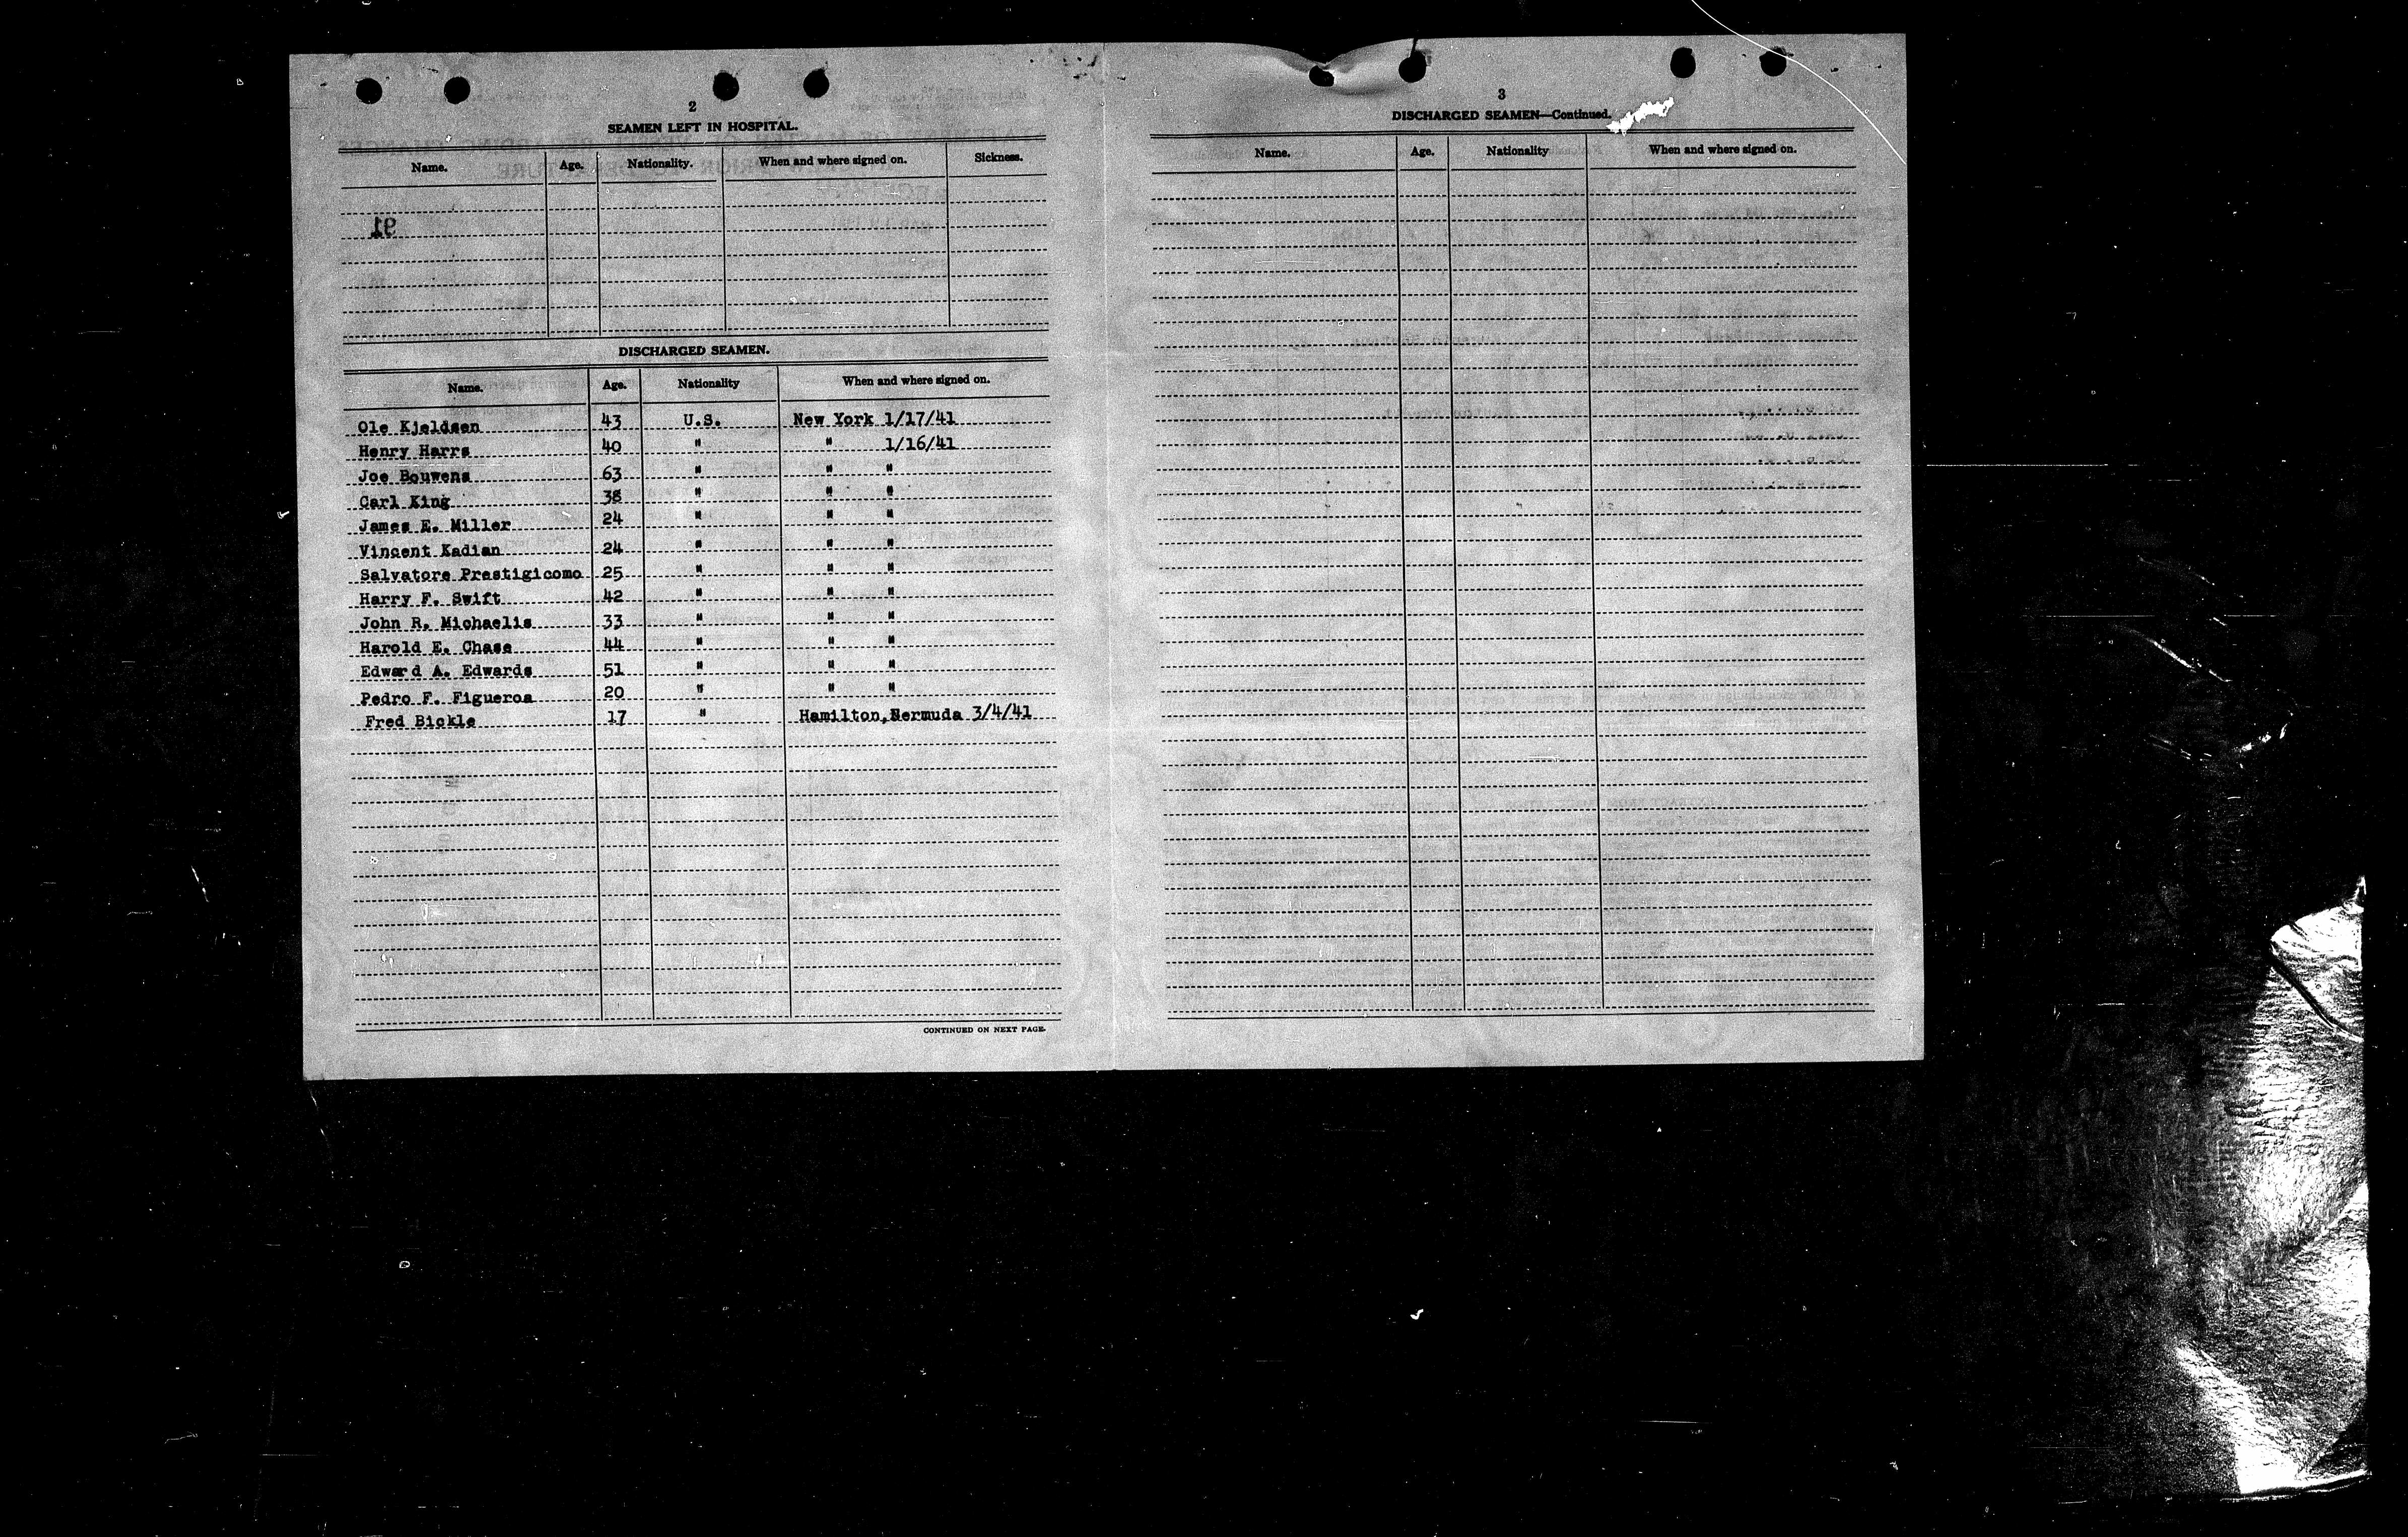 2
SEAMEN LEFT IN HOSPITAL.
Name. Age. Nationality. When and where signed on. Sickness.
91
DISCHARGED SEAMEN.
Name. Age. Nationality When and where signed on.
Ole Kjeldsen 43 U.S. New York 1/17/41
Henry Harrs 40 " " 1/16/41
Joe Bouwens 63 " " "
Carl King 38 " " "
James E. Miller 24 " " "
Vincent Kadian 24 " " "
Salvatore Prestigicomo 25 " " "
Harry F. Swift 42 " " "
John R. Michaelis 33 " " "
Harold E. Chase 44 " " "
Edward A. Edwards 51 " " "
Pedro F. Figueroa 20 " " "
Fred Bickle 17 " Hamilton, Bermuda 3/4/41
CONTINUED ON NEXT PAGE.
3
DISCHARGED SEAMEN—Continued.
Name. Age. Nationality When and where signed on.